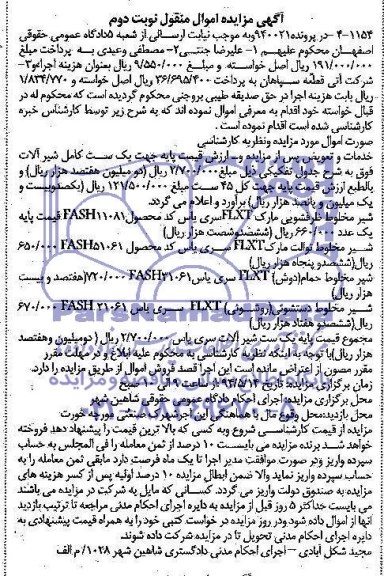 آگهی مزایده اموال منقول نوبت دوم
۴-۱۱۵۴- در پرونده ۹۴۰۰۲۱ به موجب نیابت ارسالی از شعبه ۵ دادگاه عمومی حقوقی
اصفهان محکوم علیهم ۱- علیرضا جنتی ۲- مصطفی وعیدی به پرداخت مبلغ
۱۹۱/۰۰۰/۰۰۰ ریال اصل خواسته و مبلغ ۹/۵۵۰/۰۰۰ ریال بعنوان هزینه اجراء و ۳-
شرکت آتی قطعه سپاهان به پرداخت ۳۶/۶۹۵/۴۰۰ ریال اصل خواسته و ۱/۸۳۴/۷۷۰
ریال بابت هزینه اجرا در حق صدیقه طیبی بروجنی محکوم گردیده است که محکوم له در
قبال خواسته خود اقدام به معرفی اموال نموده اند که به شرح زیر توسط کارشناس خبره
کارشناسی شده است اقدام نموده است.
صورت اموال مورد مزایده و نظریه کارشناسی
خدمات و تعویض پس از مزایده و ارزش قیمت پایه جهت یک ست کامل شیر آلات
فوق به شرح جدول تفکیکی ذیل مبلغ ۲/۷۰۰/۰۰۰ ریال (دو میلیون هفتصد هزار ریال) و
بالطبع ارزش قیمت پایه جهت کل ۴۵ ست مبلغ ۱۲۱/۵۰۰/۰۰۰ ریال (یکصد و بیست و
یک میلیون و پانصد هزار ریال) برآورد و اعلام می گردد.
شیر مخلوط ظرفشویی مارک FLXT سری یاس کد محصول FASH11081 قیمت پایه
یک عدد ۶۶۰/۰۰۰ ریال (ششصد و شصت هزار ریال)
شیر مخلوط توالت مارک FLXT سری یاس کد محصول FASH51061 ۶۵۰/۰۰۰
ریال (ششصد و پنجاه هزار ریال)
شیر مخلوط حمام (دوش) FLXT سری یاس FASH31061 ۷۲۰/۰۰۰ (هفتصد و بیست
هزار ریال)
شیر مخلوط دستشوئی (روشوئی) FLXT سری یاس FASH 21061 ۶۷۰/۰۰۰
ریال (ششصد و هفتاد هزار ریال)
مجموع قیمت پایه یک ست شیر آلات سری یاس ۲/۷۰۰/۰۰۰ ریال (دو میلیون و هفتصد
هزار ریال) با توجه به اینکه نظریه کارشناسی به محکوم علیه ابلاغ و در مهلت مقرر
مقرر مصون از اعتراض مانده است این اجرا قصد فروش اموال از طریق مزایده را دارد.
زمان برگزاری مزایده: تاریخ ۹۴/۵/۱۳ از ساعت ۹ الی ۱۰ صبح
محل برگزاری مزایده: اجرای احکام دادگاه عمومی حقوقی شاهین شهر
محل بازدید: محل وقوع مال با هماهنگی این اجرا شهرک صنعتی مورچه خورت
مزایده از قیمت کارشناسی شروع و به کسی که بالا ترین قیمت را پیشنهاد دهد فروخته
خواهد شد برنده مزایده می بایست ۱۰ درصد از ثمن معامله را فی المجلس به حساب
سپرده واریز و در صورت موافقت مدیر اجرا تا یک ماه فرصت دارد مابقی ثمن معامله را به
حساب سپرده واریز نماید والا ضمن ابطال مزایده ۱۰ درصد اولیه پس از کسر هزینه های
مزایده به صندوق دولت واریز می گردد. کسانی که مایل به شرکت در مزایده می باشند
می بایست حداکثر ۵ روز قبل از مزایده به دایره اجرای احکام مدنی مراجعه تا ترتیب بازدید
آنها از اموال داده شود و در روز مزایده درخواست کتبی خود را به همراه قیمت پیشنهادی به
دایره اجرای احکام مدنی تحویل تا در مزایده شرکت داده شوند.
مجید شکل آبادی - اجرای احکام مدنی دادگستری شاهین شهر ۱۰۲۸/ م الف